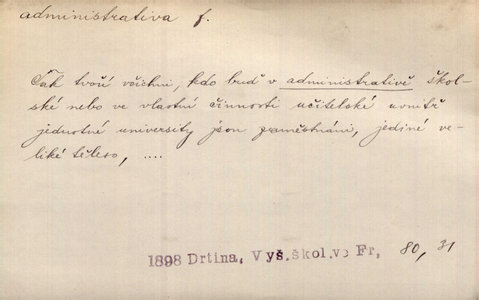 administrativa f.
Tak tvoří všichni, kdo buď v administrativě škol-
ské nebo ve vlastní činnosti učitelské uvnitř
jednotné university jsou zaměstnáni, jediné ve-
liké těleso, ....
1898 Drtina, Vyš.škol.ve Fr, 80, 31